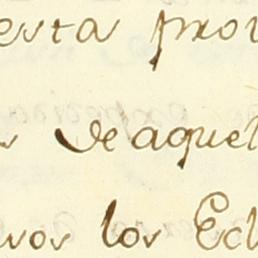 esta prov
s de aquel
nos los Ecl